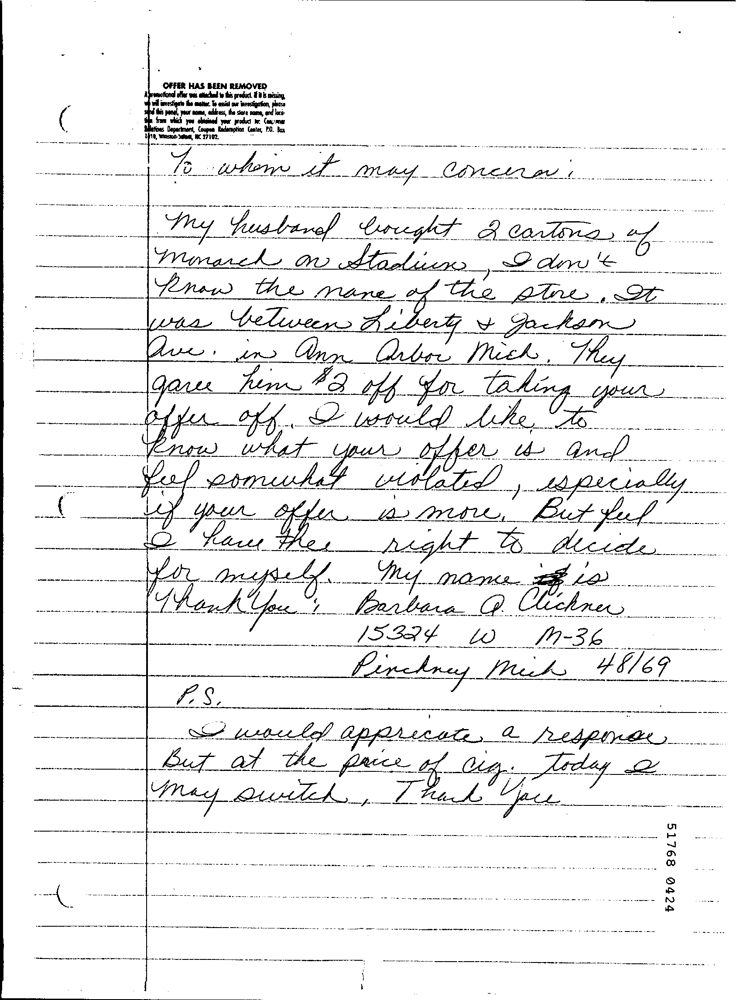 OFFER HAS BEEN REMOVED
A promotional offer was attached to this product. If it is missing,
we will investigate the matter. To assist our investigation, please
send this panel, your name, address, the store name, and loca-
tion from which you obtained your product to: Consumer
Relations Department, Coupon Redemption Center, P.O. Box
Winston-Salem, NC 27102.
To whom it may concern:
My husband bought 2 cartons of
Monarch on Stadium, I don't
know the name of the store. It
was between Liberty & Jackson
Ave. in Ann Arbor Mich. They
gave him $2 off for taking your
offer off. I would like to
know what your offer is and
feel somewhat violated, especially
if your offer is more. But feel
I have thee right to decide
for myself. My name is
Thank You; Barbara A. Clickner
15324 W M-36
Pinckney Mich 48169
P.S.
I would apprecate a response
But at the price of cig. today I
may switch, Thank You
51768 0424